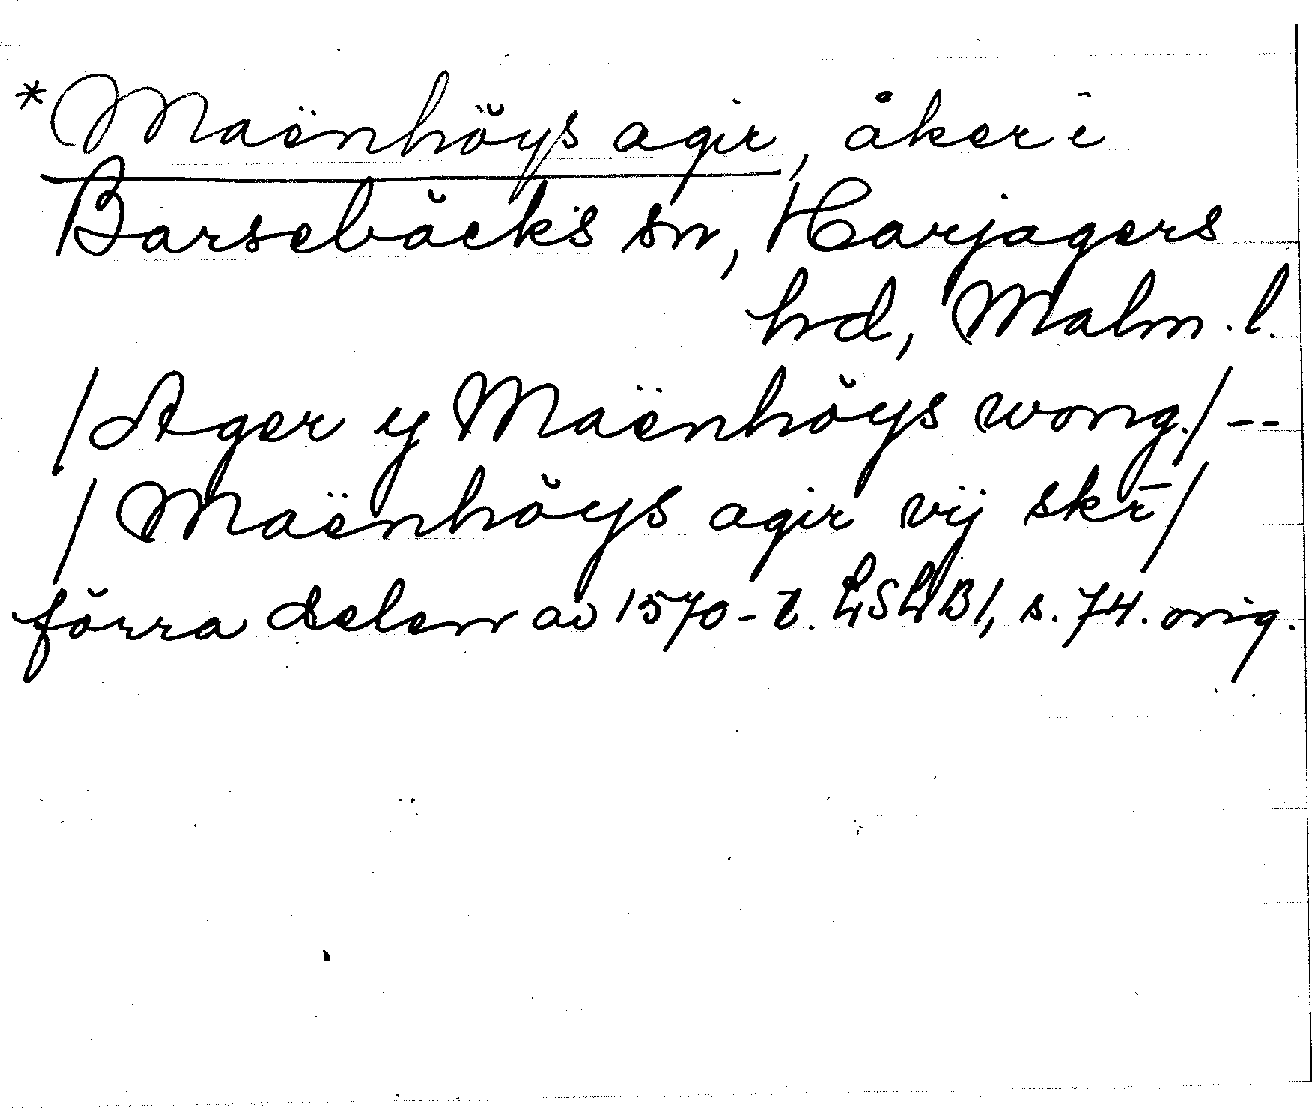 *Maënhöys agir, åker i
Barsebäcks sn, Harjagers
hd, Malm. l.
/Ager y Maënhöys wong./--
/Maënhöys agir vij skr̄/
förra delen av 1570-t. LSLB1, s. 74. orig.